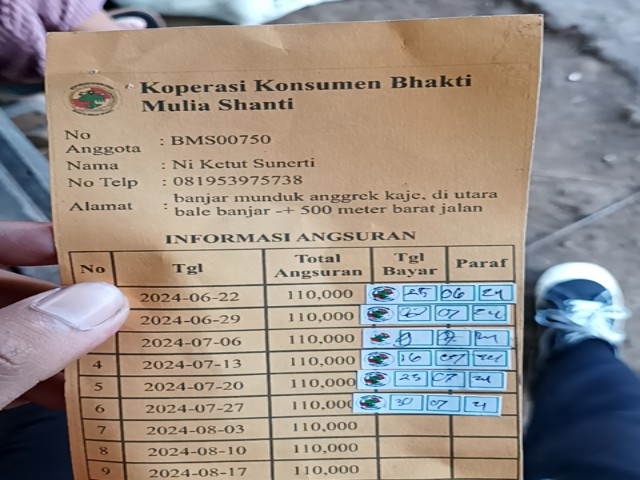 Koperasi Konsumen Bhakti
Mulia Shanti
No
Anggota : BMS00750
Nama : Ni Ketut Sunerti
No Telp : 081953975738
Alamat : banjar munduk anggrek kaje, di utara
bale banjar -+ 500 meter barat jalan
INFORMASI ANGSURAN
No Tgl Total Angsuran Tgl Bayar Paraf
2024-06-22 110,000 25 06 24
2024-06-29 110,000 07 24
2024-07-06 110,000
4 2024-07-13 110,000 16 07 24
5 2024-07-20 110,000 23 07 24
6 2024-07-27 110,000 30 07 24
7 2024-08-03 110,000
8 2024-08-10 110,000
9 2024-08-17 110,000